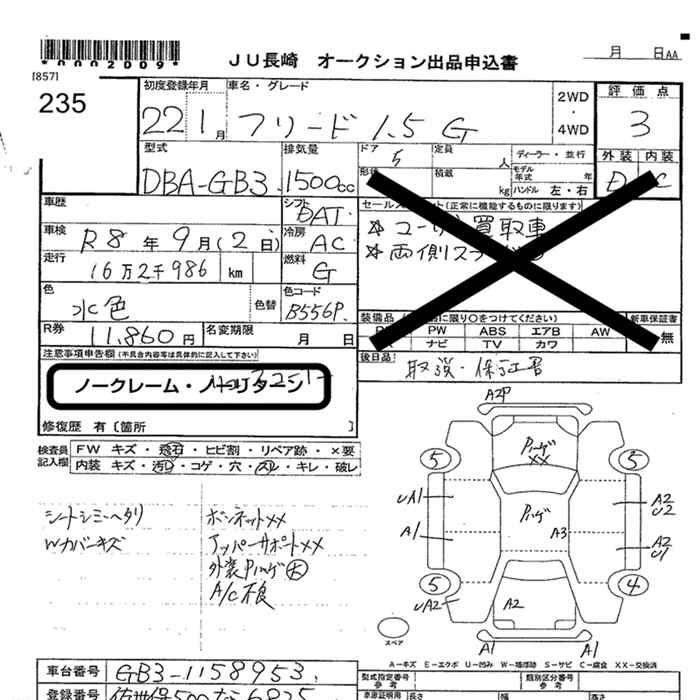 *0002009*
JU長崎 オークション出品申込書
月 日AA
[857]
235
初度登録年月 車名・グレード 2WD・4WD 評価点
22 1月 フリード 1.5 G 3
型式 排気量 ドア 定員 人 ディーラー・並行 外装 内装
DBA-GB3 1500cc 5 形状 積載 kg モデル年式 年 ハンドル 左・右 D C
車歴 シフト DAT
車検 R8年9月(2日) 冷房 AC
走行 16万2千986 km 燃料 G
色 水色 色替 色コード B556P
R券 11,860円 名変期限 月 日
(正常に機能するものに限ります)
*ユーザ買取車
*両側スラ
装備品 に限り○をつけてください) 新車保証書
PW ABS エアB AW 無
ナビ TV カワ
後日品: 取説・保証書
注意事項申告欄(不具合内容等は具体的に記入して下さい)
ノークレーム・ノーリターン
修復歴 有〔箇所 〕
検査員記入欄
FW キズ・飛石・ヒビ割・リペア跡・×要
内装 キズ・汚レ・コゲ・穴・スレ・キレ・破レ
シートシミ・ヘタリ
Wカバーキズ
ボンネットXX
アッパーサポートXX
外装Pハゲ大
A/C不良
A2P
Pハゲ
XX
5 5
UA1 A2
U2
Pハゲ
A1 A3 A2
U1
5 4
UA2 A2
スペア
A1 A1
A-キズ E-エクボ U-凹み W-補修跡 S-サビ C-腐食 XX-交換済
車台番号 GB3-1158953
型式指定番号 参考 類別区分番号 参考
登録番号 佐世保500な6825
車庫証明用 長さ 幅 高さ